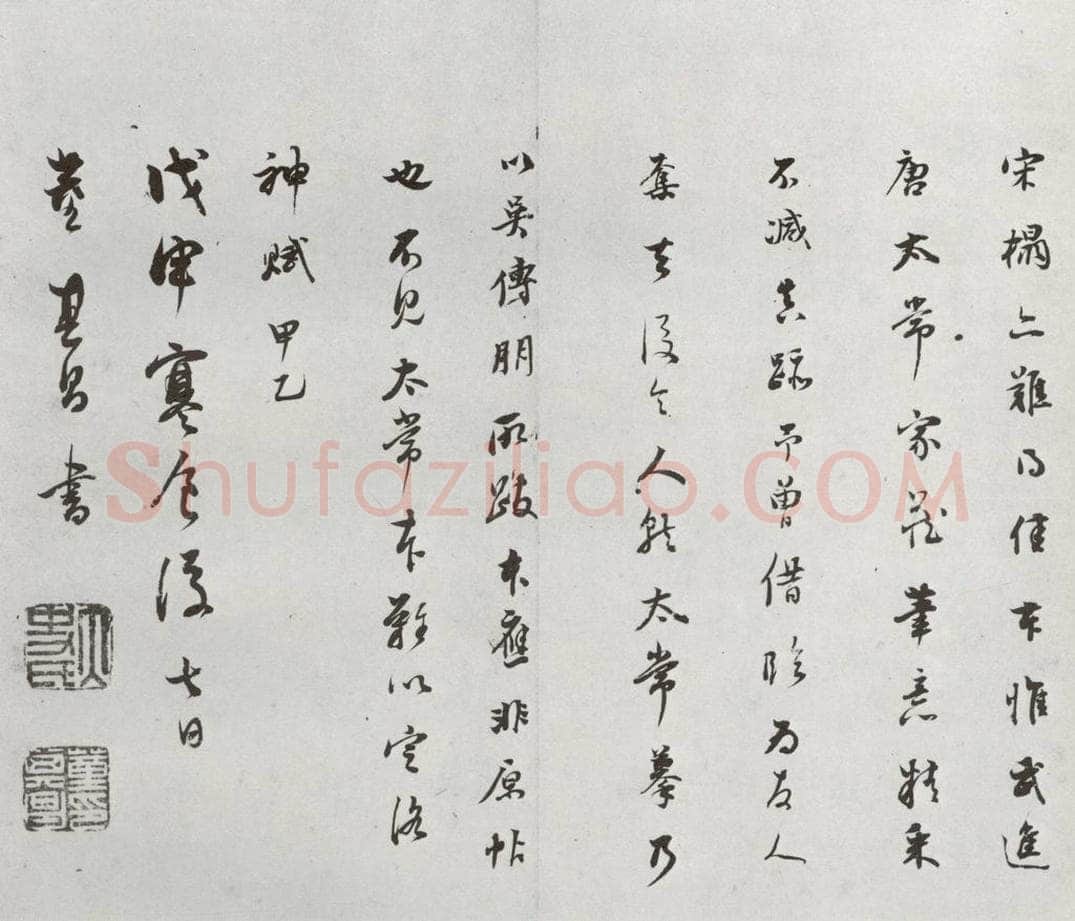 宋榻亦難得佳本惟武進
唐太常家藏筆意精采
不減真跡予曾借臨為友人
奪去後令人就太常摹乃
以吳傅朋所跋本應非原帖
也不見太常本難以定洛
神賦甲乙
戊申寒食後七日
董其昌書
太史氏
董其昌印
Shufaziliao.COM